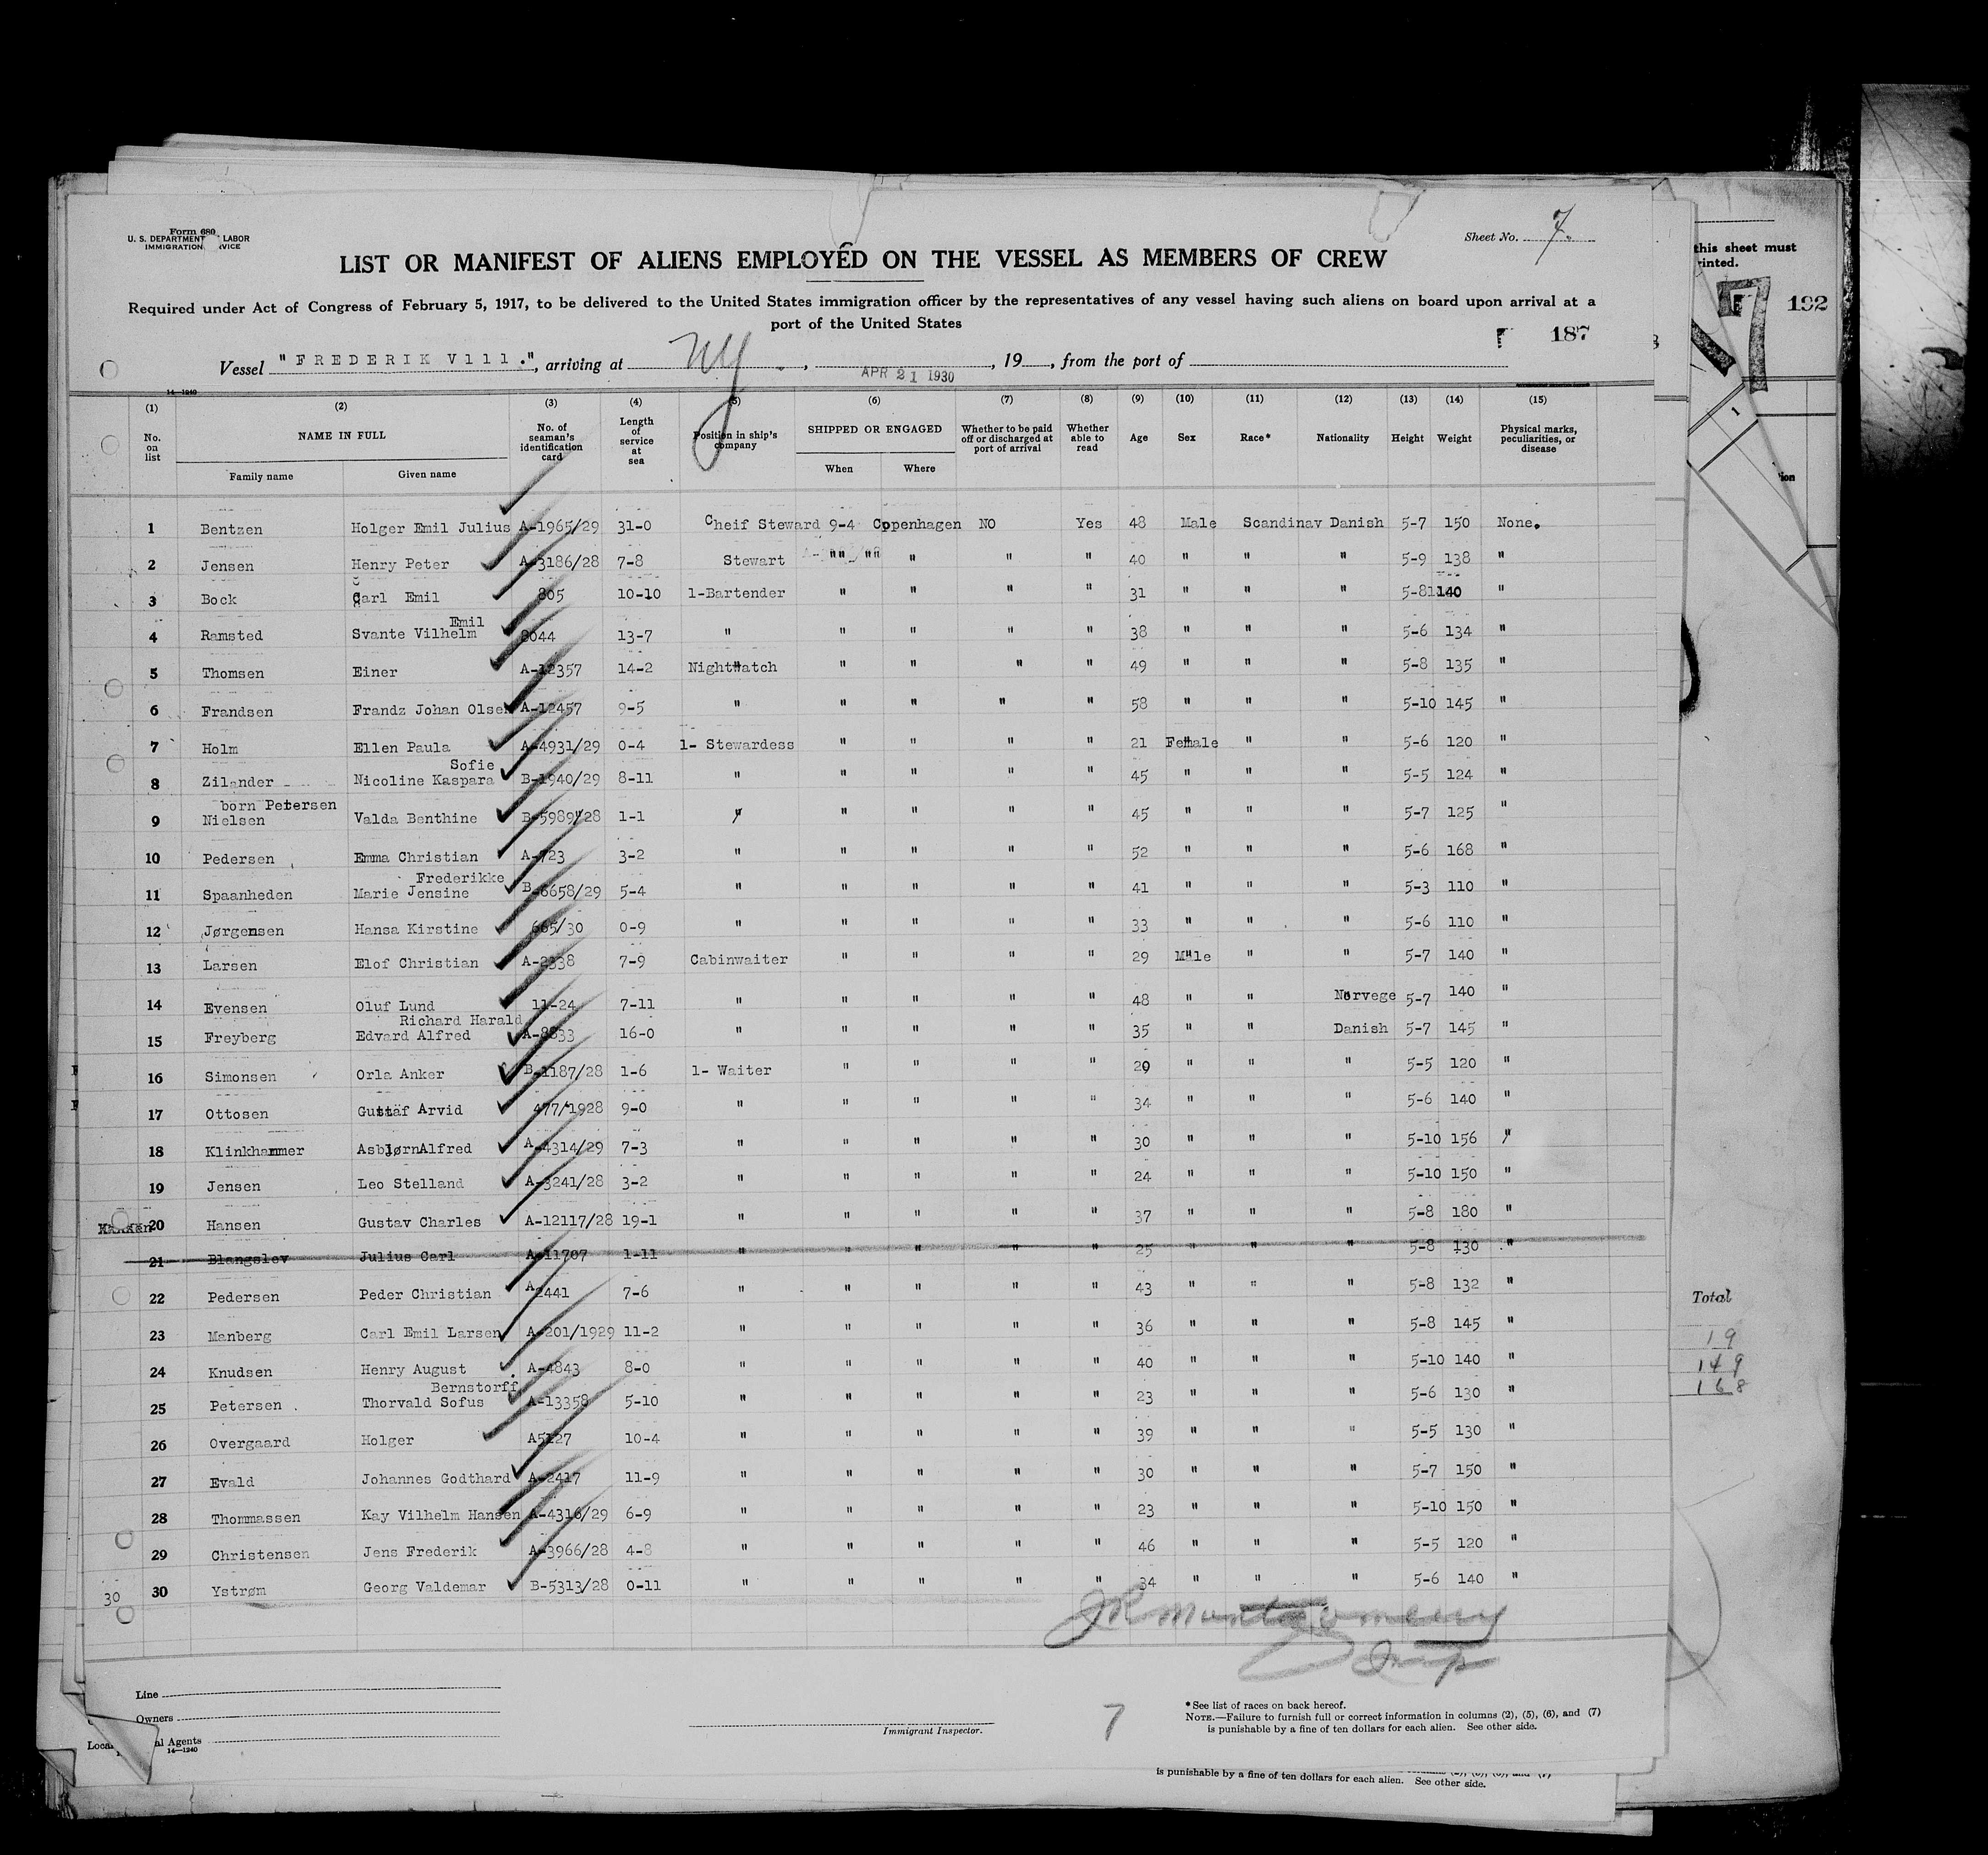 Form 680
U. S. DEPARTMENT LABOR
IMMIGRATION
Sheet No. 7.
LIST OR MANIFEST OF ALIENS EMPLOYED ON THE VESSEL AS MEMBERS OF CREW
Required under Act of Congress of February 5, 1917, to be delivered to the United States immigration officer by the representatives of any vessel having such aliens on board upon arrival at a
port of the United States
187
Vessel "FREDERIK V111.", arriving at NY, APR 21 1930, 19, from the port of
14—1240
(1) (2) (3) (4) (5) (6) (7) (8) (9) (10) (11) (12) (13) (14) (15)
No. on list NAME IN FULL Family name Given name No. of seaman's identification card Length of service at sea Position in ship's company SHIPPED OR ENGAGED When Where Whether to be paid off or discharged at port of arrival Whether able to read Age Sex Race* Nationality Height Weight Physical marks, peculiarities, or disease
1 Bentzen Holger Emil Julius A-1965/29 31-0 Cheif Steward 9-4 Copenhagen NO Yes 48 Male Scandinav Danish 5-7 150 None.
2 Jensen Henry Peter A-3186/28 7-8 Stewart "" "" " " " 40 " " " 5-9 138 "
3 Bock Carl Emil 805 10-10 1-Bartender " " " " 31 " " " 5-8 140 "
4 Ramsted Svante Vilhelm Emil 8044 13-7 " " " " " 38 " " " 5-6 134 "
5 Thomsen Einer A-12357 14-2 Nightwatch " " " " 49 " " " 5-8 135 "
6 Frandsen Frandz Johan Olsen A-12457 9-5 " " " " " 58 " " " 5-10 145 "
7 Holm Ellen Paula A-4931/29 0-4 1- Stewardess " " " " 21 Female " " 5-6 120 "
8 Zilander Nicoline Kaspara Sofie B-1940/29 8-11 " " " " " 45 " " " 5-5 124 "
9 born Petersen Nielsen Valda Benthine B-5989/28 1-1 " " " " " 45 " " " 5-7 125 "
10 Pedersen Emma Christian A-723 3-2 " " " " " 52 " " " 5-6 168 "
11 Spaanheden Marie Jensine Frederikke B-6658/29 5-4 " " " " " 41 " " " 5-3 110 "
12 Jørgensen Hansa Kirstine 665/30 0-9 " " " " " 33 " " " 5-6 110 "
13 Larsen Elof Christian A-2338 7-9 Cabinwaiter " " " " 29 Male " " 5-7 140 "
14 Evensen Oluf Lund 11-24 7-11 " " " " " 48 " " Norvege 5-7 140 "
15 Freyberg Edvard Alfred Richard Harald A-8833 16-0 " " " " " 35 " " Danish 5-7 145 "
16 Simonsen Orla Anker B-1187/28 1-6 1- Waiter " " " " 29 " " " 5-5 120 "
17 Ottosen Gustäf Arvid 477/1928 9-0 " " " " " 34 " " " 5-6 140 "
18 Klinkhammer AsbjørnAlfred A-4314/29 7-3 " " " " " 30 " " " 5-10 156 "
19 Jensen Leo Stelland A-3241/28 3-2 " " " " " 24 " " " 5-10 150 "
20 Hansen Gustav Charles A-12117/28 19-1 " " " " " 37 " " " 5-8 180 "
21 Blangslev Julius Carl A-11707 1-11 " " " " " 25 " " " 5-8 130 "
22 Pedersen Peder Christian A-2441 7-6 " " " " " 43 " " " 5-8 132 "
23 Manberg Carl Emil Larsen A-201/1929 11-2 " " " " " 36 " " " 5-8 145 "
24 Knudsen Henry August A-4843 8-0 " " " " " 40 " " " 5-10 140 "
25 Petersen Thorvald Sofus Bernstorff A-13358 5-10 " " " " " 23 " " " 5-6 130 "
26 Overgaard Holger A5127 10-4 " " " " " 39 " " " 5-5 130 "
27 Evald Johannes Godthard A-2417 11-9 " " " " " 30 " " " 5-7 150 "
28 Thommassen Kay Vilhelm Hansen A-4316/29 6-9 " " " " " 23 " " " 5-10 150 "
29 Christensen Jens Frederik A-3966/28 4-8 " " " " " 46 " " " 5-5 120 "
30 30 Ystrøm Georg Valdemar B-5313/28 0-11 " " " " " 34 " " " 5-6 140 "
JR Montgomery
Insp
Line
Owners
Local Agents
14—1240
Immigrant Inspector.
7
* See list of races on back hereof.
NOTE.—Failure to furnish full or correct information in columns (2), (5), (6), and (7)
is punishable by a fine of ten dollars for each alien. See other side.
is punishable by a fine of ten dollars for each alien. See other side.
this sheet must
rinted.
7 192
1
ion
Total
19
149
168